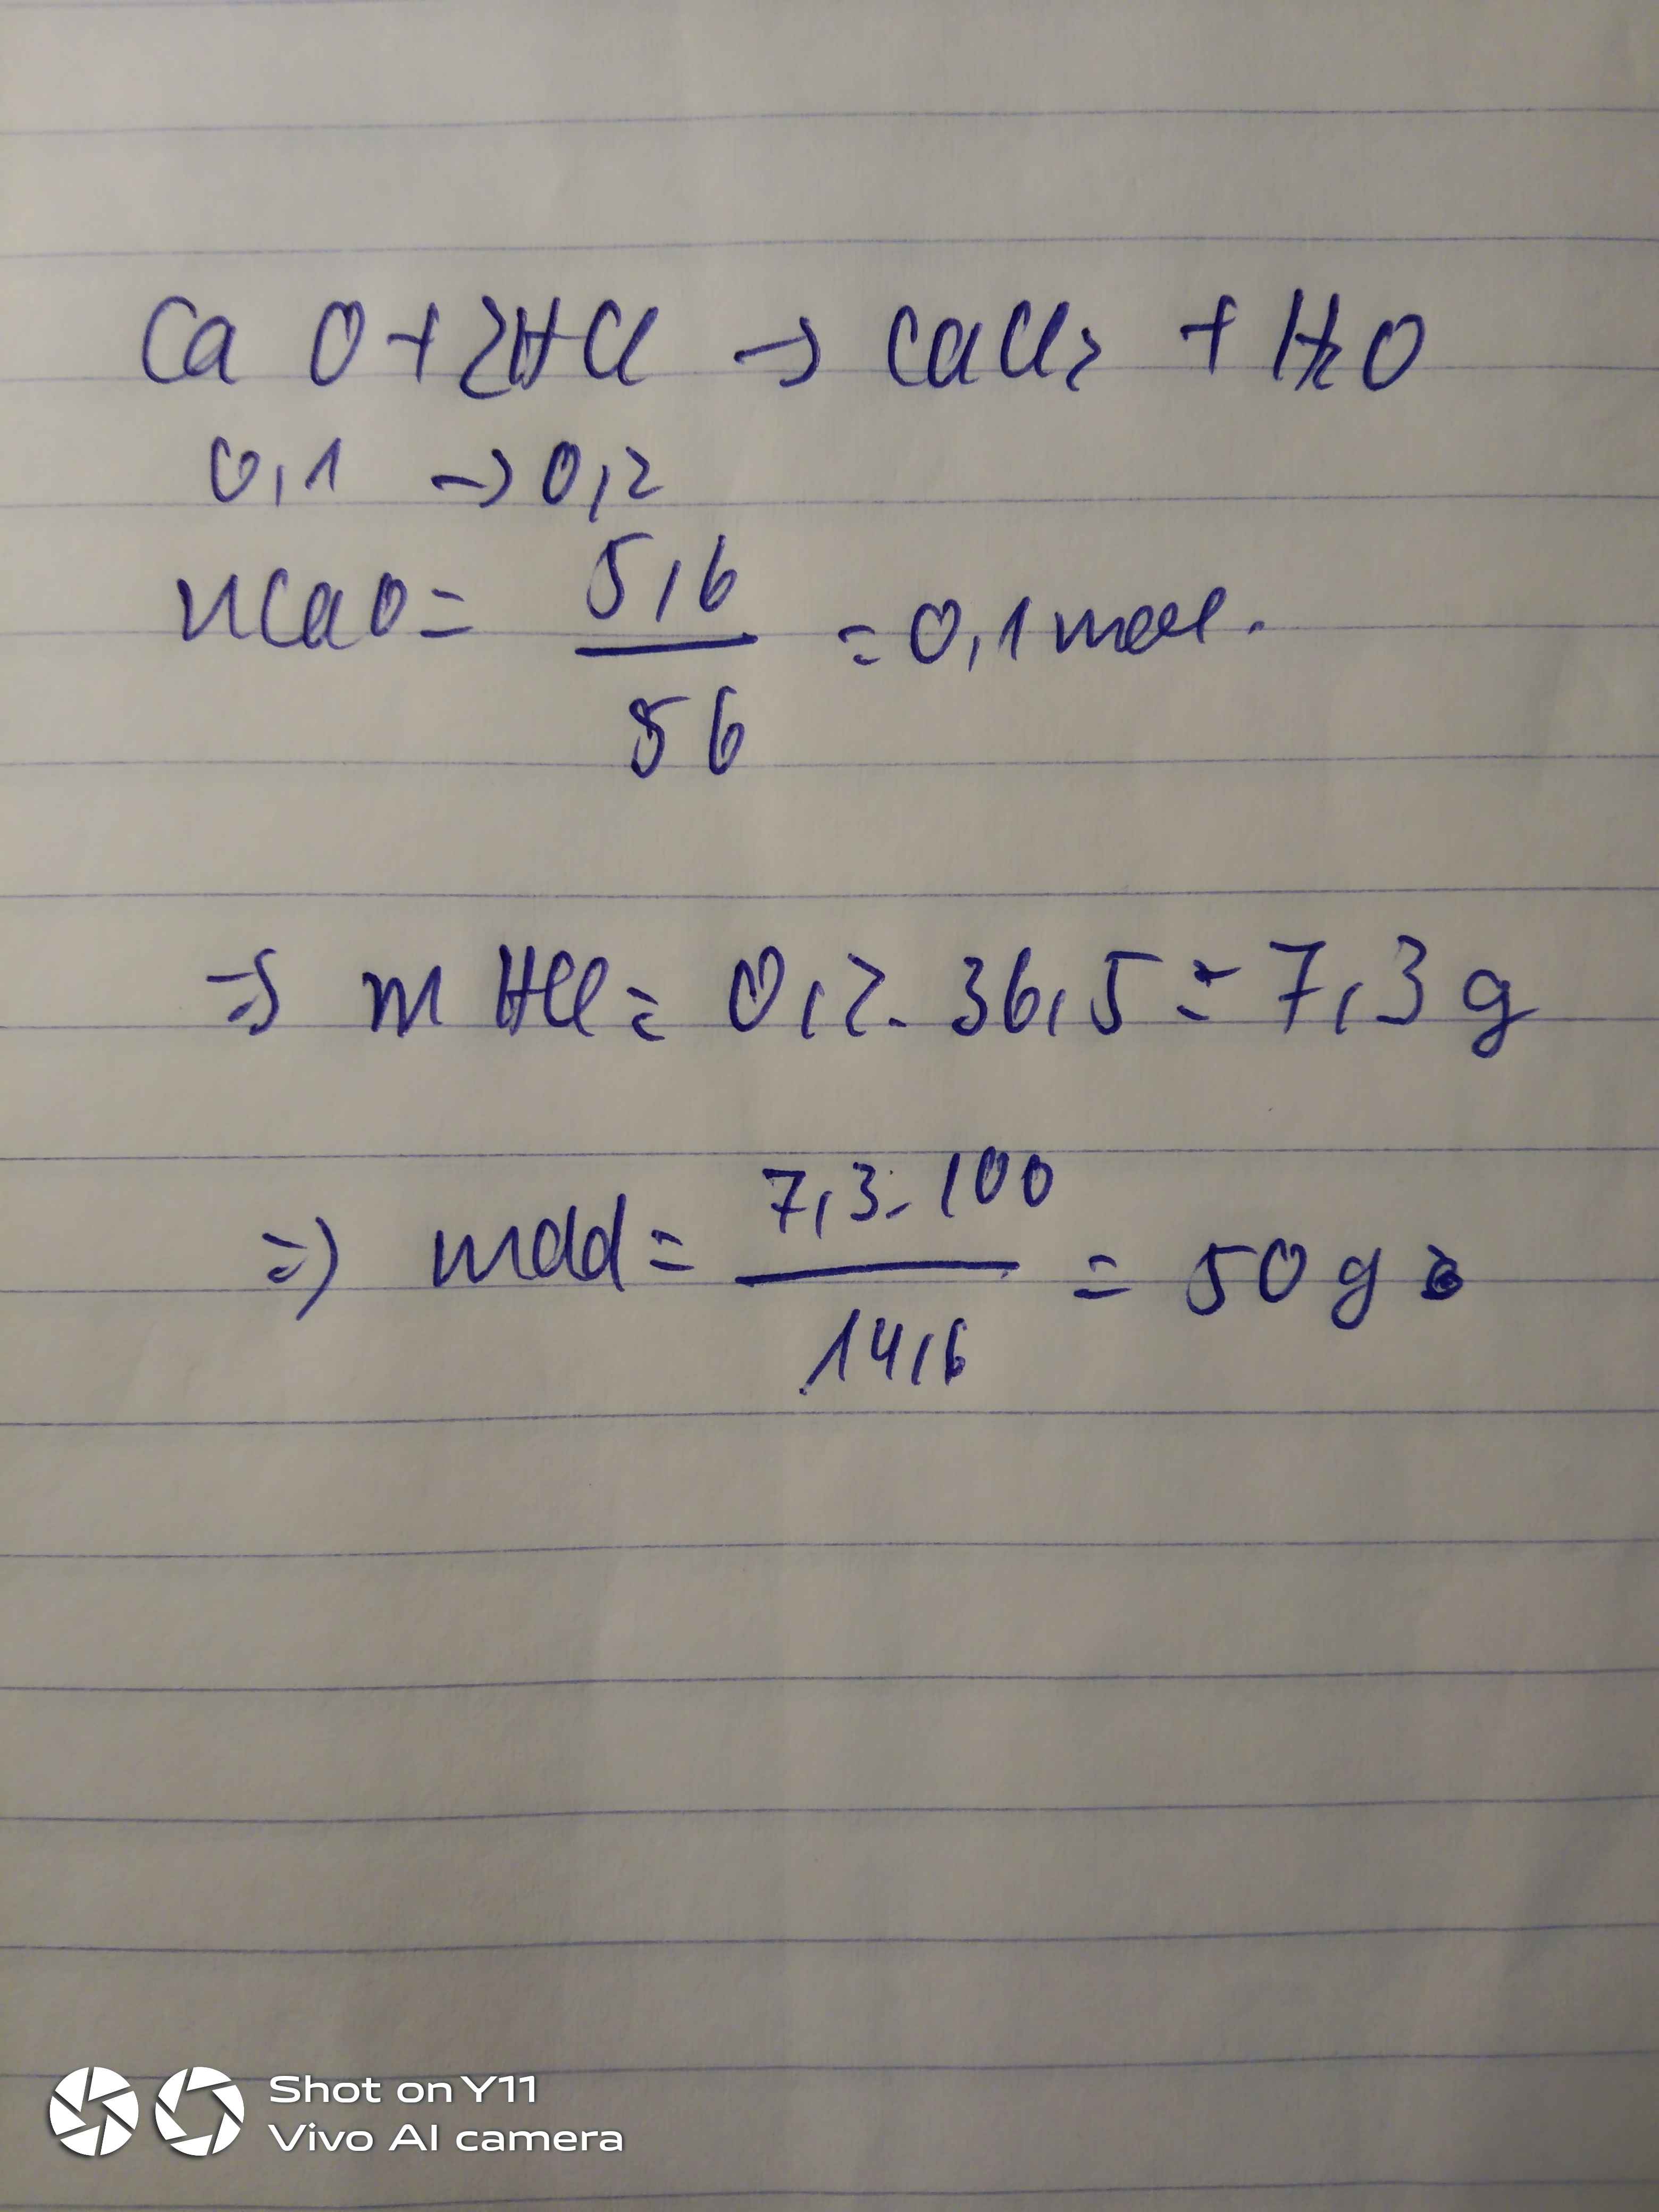 CaO + 2HCl → CaCl₂ + H₂O
0,1 → 0,2
nCaO = 5,6 / 56 = 0,1 mol.
=> m HCl = 0,2. 36,5 = 7,3 g
=> mdd = 7,3. 100 / 14,6 = 50 g
Shot on Y11
Vivo AI camera